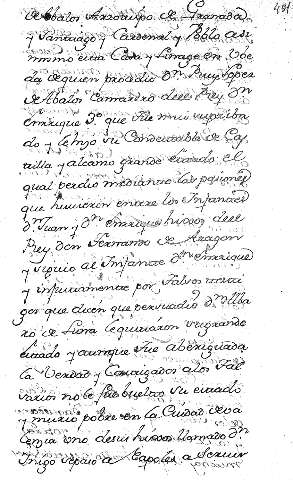 491
de Abalos Arzobispo de Granada
y Santiago y Cardenal y Poblo assi
mismo esta Casa y Linage en Vbe
da de quien prosedio Dn Ruy Lopez
de Abalos Camarero del Rey Dn
Enrrique 3o que fue mui su priba
do y le hizo su Condestable de Cas
tilla y alcanso grande estado el
qual perdio mediante las pasiones
que huvieron entre los Infantes
Dn Juan y Dn Enrrique hixos del
Rey don Fernando de Aragon
y siguio al Infante Dn Enrrique
y injustamente por falsos testi
gos que disen que persuadio Dn Alba
ro de Luna le quitaron su grande
estado y aunque fue aberiguada
la Verdad y Castigados a los fal
sarios no le fue buelto su estado
y murio pobre en la Ciudad de Va
lencia uno de sus hixos llamado Dn
Iñigo se paso a Napoles a servir